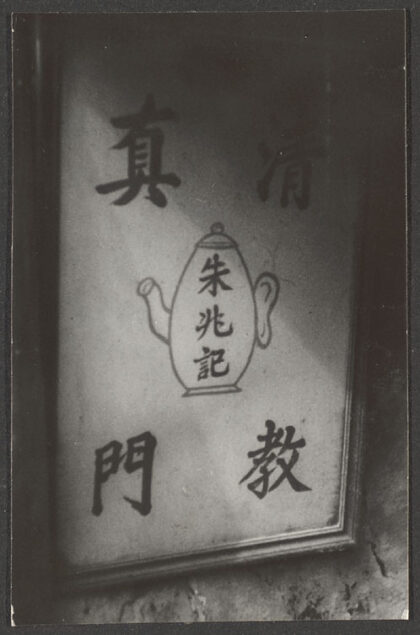 清真
朱兆記
教門